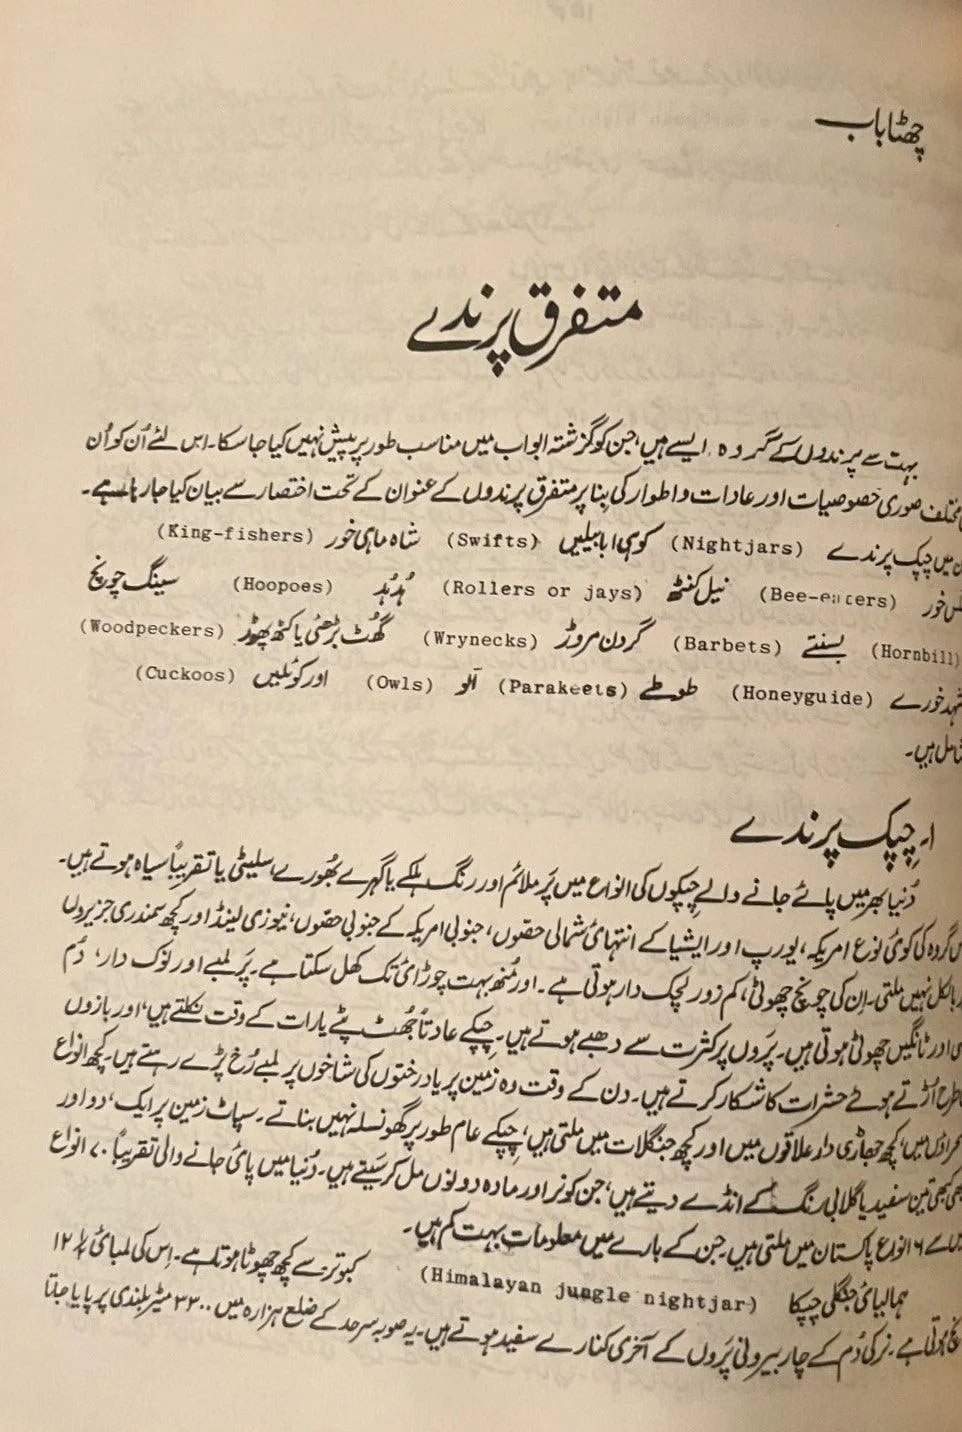 چھٹا باب
متفرق پرندے
بہت سے پرندوں کے گروہ ایسے ہیں، جن کو گزشتہ ابواب میں مناسب طور پر پیش نہیں کیا جا سکا۔ اس لئے اُن کو اُن
مختلف صوری خصوصیات اور عادات و اطوار کی بنا پر متفرق پرندوں کے عنوان کے تحت اختصار سے بیان کیا جا رہا ہے۔
میں چپک پرندے (Nightjars) کوہی ابابیلیں (Swifts) شاہ ماہی خور (King-fishers)
خور (Bee-eaters) نیل کنٹھ (Rollers or jays) ہُدہُد (Hoopoes) سینگ چونچ
(Hornbill) بسنتے (Barbets) گردن مروڑ (Wrynecks) گھُٹ بڑھئی یا کٹھ پھوڑ (Woodpeckers)
شہد خورے (Honeyguide) طوطے (Parakeets) اُلو (Owls) اور کوئلیں (Cuckoos)
ہیں۔
۱۔ چِپک پرندے
دُنیا بھر میں پائے جانے والے چِپکوں کی انواع میں پَر ملائم اور رنگ ہلکے یا گہرے بھُورے سلیٹی یا تقریباً سیاہ ہوتے ہیں۔
گروہ کی کوئی نوع امریکہ، یورپ اور ایشیا کے انتہائی شمالی حصّوں، جنوبی امریکہ کے جنوبی حصّوں، نیوزی لینڈ اور کچھ سمندری جزیروں
بالکل نہیں ملتی۔ اِن کی چونچ چھوٹی، کم زور لچک دار ہوتی ہے۔ اور مُنھ بہت چوڑائی تک کھل سکتا ہے۔ پَر لمبے اور نوک دار، دُم
اور ٹانگیں چھوٹی ہوتی ہیں۔ پَروں پر کثرت سے دھبے ہوتے ہیں۔ چِپکے عادتاً جھُٹ پٹے یا رات کے وقت نکلتے ہیں، اور بازوں
طرح اُڑتے ہوئے حشرات کا شکار کرتے ہیں۔ دن کے وقت وہ زمین پر یا درختوں کی شاخوں پر لمبے رُخ پڑے رہتے ہیں۔ کچھ انواع
میں، کچھ جھاڑی دار علاقوں میں اور کچھ جنگلات میں ملتی ہیں، چِپکے عام طور پر گھونسلہ نہیں بناتے۔ سپاٹ زمین پر ایک، دو اور
کبھی تین سفید یا گلابی رنگ کے انڈے دیتے ہیں، جن کو نر اور مادہ دونوں مل کر سَیتے ہیں۔ دُنیا میں پائی جانے والی تقریباً ۷۰ انواع
میں سے ۶ انواع پاکستان میں ملتی ہیں۔ جن کے بارے میں معلومات بہت کم ہیں۔
ہمالیائی جنگلی چپکا (Himalayan jungle nightjar) کبوتر سے کچھ چھوٹا ہوتا ہے۔ اِس کی لمبائی ۱۲
ہوتی ہے۔ نر کی دُم کے چار بیرونی پَروں کے آخری کنارے سفید ہوتے ہیں۔ یہ صوبہ سرحد کے ضلع ہزارہ میں ۳۳۰۰ میٹر بلندی پر پایا جاتا